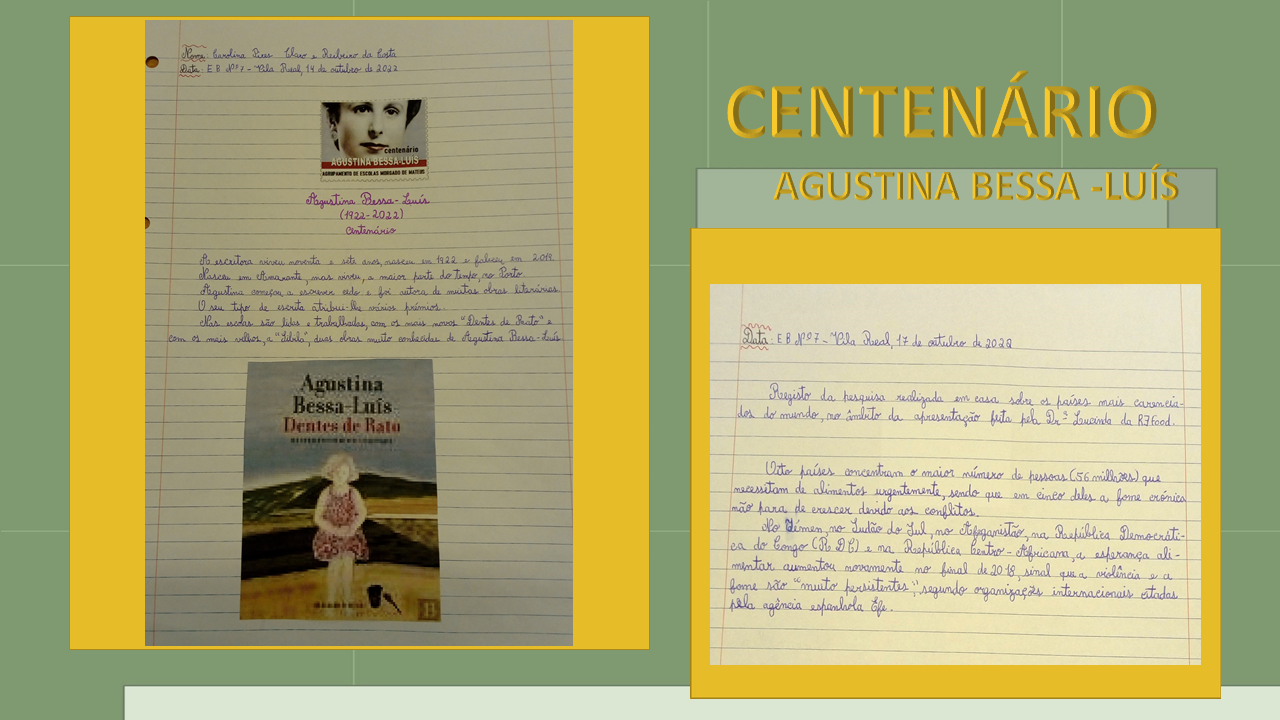 Nome: Carolina Pires Claro e Ribeiro da Costa
Data: E B Nº7 - Vila Real, 14 de outubro de 2022
centenário
AGUSTINA BESSA-LUÍS
AGRUPAMENTO DE ESCOLAS MORGADO DE MATEUS
Agustina Bessa-Luís
(1922-2022)
Centenário
A escritora viveu noventa e sete anos, nasceu em 1922 e faleceu em 2019.
Nasceu em Amarante, mas viveu, a maior parte do tempo, no Porto.
Agustina começou a escrever cedo e foi autora de muitas obras literárias.
O seu tipo de escrita atribui-lhe vários prémios.
Nas escolas são lidas e trabalhadas, com os mais novos "Dentes de Rato" e
com os mais velhos, a "Sibila", duas obras muito conhecidas de Agustina Bessa-Luís.
Agustina
Bessa-Luís
Dentes de Rato
CENTENÁRIO
AGUSTINA BESSA -LUÍS
Data: E B Nº7 - Vila Real, 17 de outubro de 2022
Registo da pesquisa realizada em casa sobre os países mais carencia-
dos do mundo, no âmbito da apresentação feita pela Dr.ª Lucinda da R7Food.
Oito países concentram o maior número de pessoas (56 milhões) que
necessitam de alimentos urgentemente, sendo que em cinco deles a fome crónica
não para de crescer devido aos conflitos.
No Iémen, no Sudão do Sul, no Afeganistão, na República Democráti-
ca do Congo (R.D.C) e na República Centro-Africana, a esperança ali-
mentar aumentou novamente no final de 2018, sinal que a violência e a
fome são "muito persistentes", segundo organizações internacionais citadas
pela agência espanhola Efe.